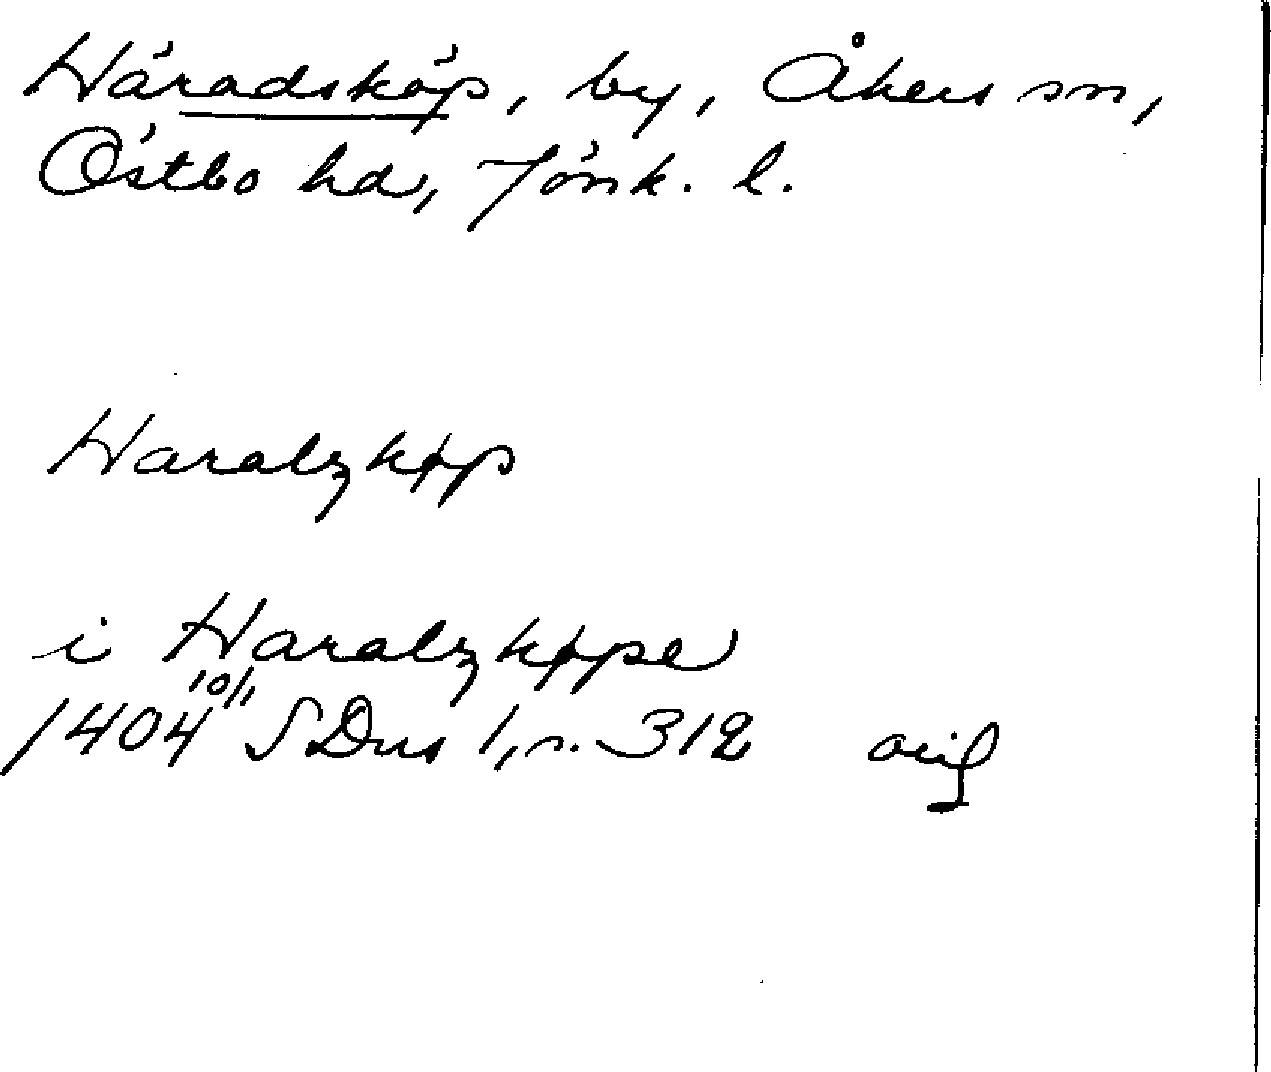 Häradsköp, by, Åkers sn,
Östbo hd, Jönk. l.
Haralzkøp
i Haralzkøpe
1404 10/1 SDns 1, s. 312 orig